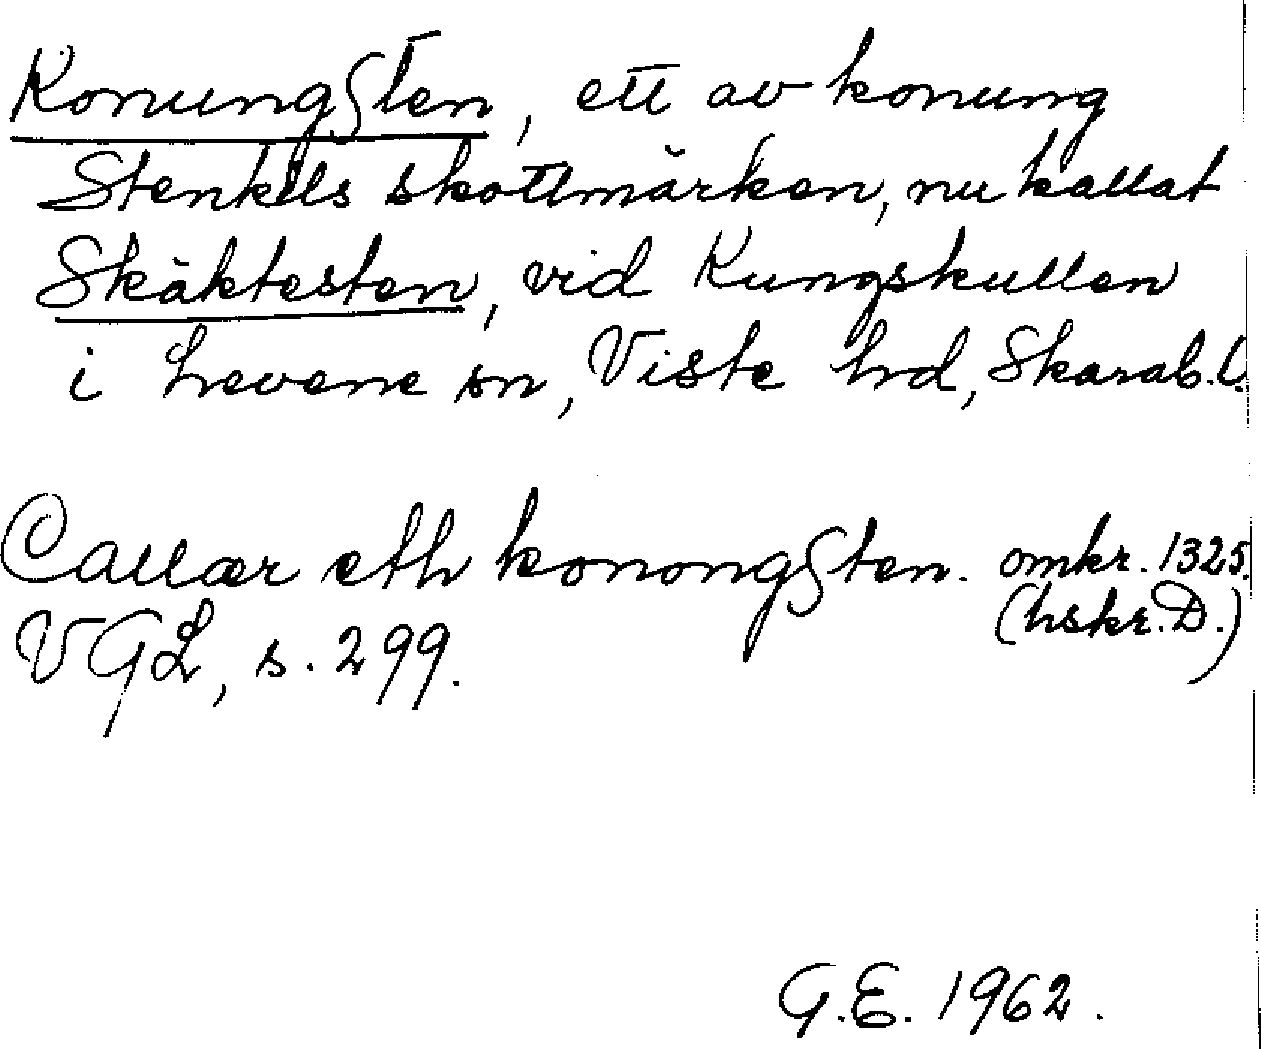 Konungsten, ett av konung
Stenkils skottmärken, nu kallat
Skäktesten, vid Kungskullen
i Levene sn, Viste hrd, Skarab. l.
Callær eth konongsten. omkr. 1325.
(hskr. D.)
VGL, s. 299.
G.E. 1962.